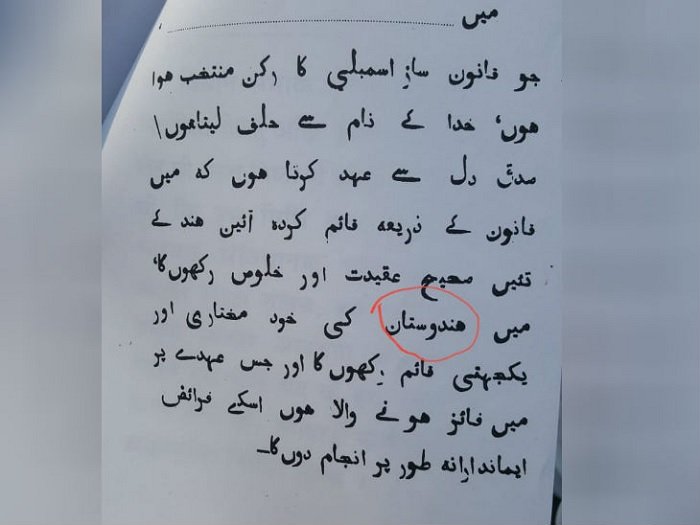 میں ........................................،
جو قانون ساز اسمبلی کا رکن منتخب ہوا
ہوں، خدا کے نام سے حلف لیتا ہوں\
صدق دل سے عہد کرتا ہوں کہ میں
قانون کے ذریعہ قائم کردہ آئین ہند کے
تئیں صحیح عقیدت اور خلوص رکھوں گا،
میں ہندوستان کی خود مختاری اور
یکجہتی قائم رکھوں گا اور جس عہدے پر
میں فائز ہونے والا ہوں اسکے فرائض
ایماندارانہ طور پر انجام دوں گا۔